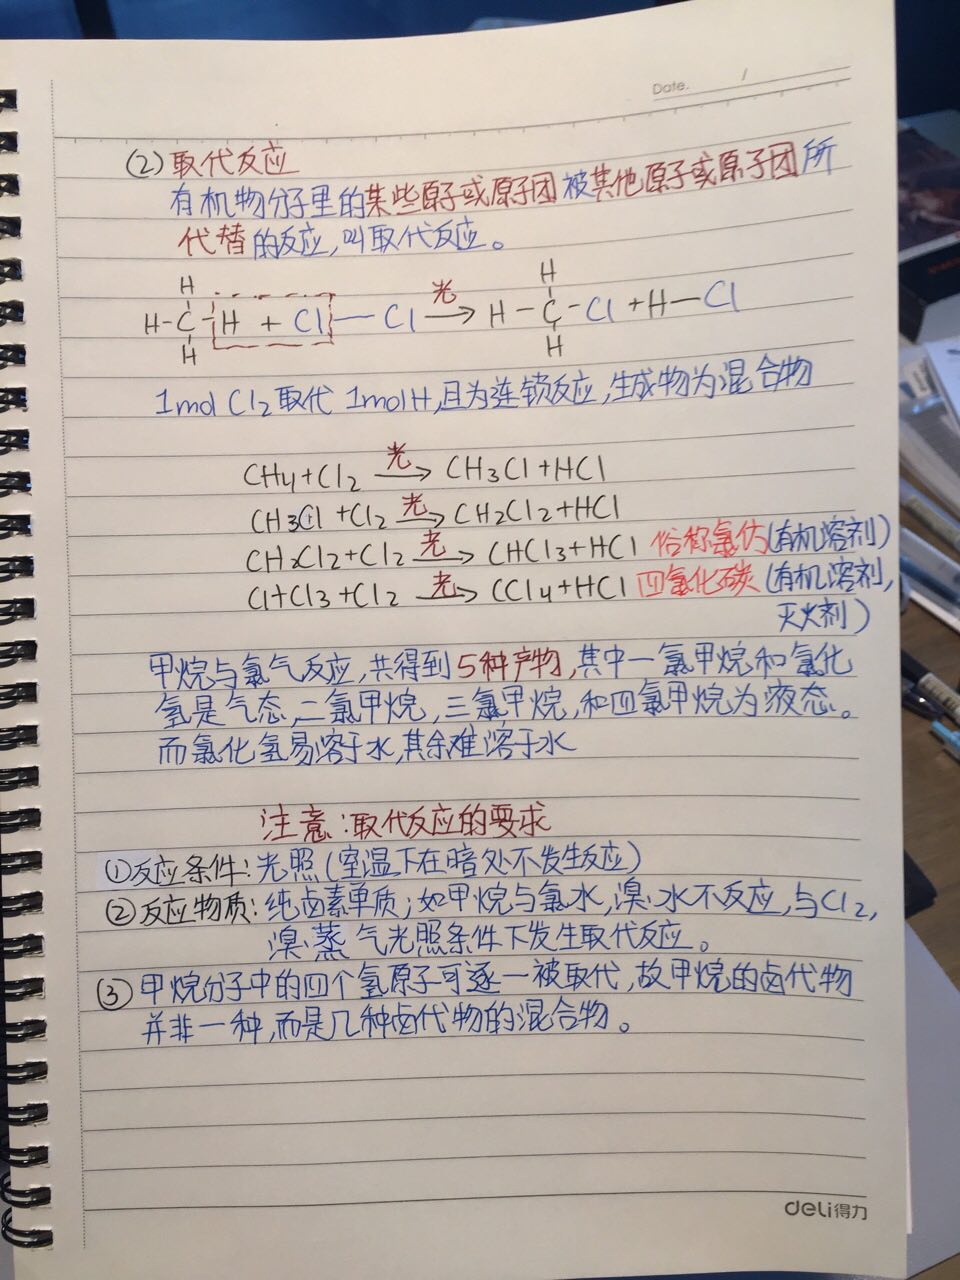 Date. /
(2) 取代反应
有机物分子里的某些原子或原子团被其他原子或原子团所
代替的反应,叫取代反应。
H H
H-C-H + Cl—Cl 光→ H-C-Cl + H—Cl
H H
1mol Cl2取代 1molH,且为连锁反应,生成物为混合物
CH4+Cl2 光→ CH3Cl+HCl
CH3Cl+Cl2 光→ CH2Cl2+HCl
CH2Cl2+Cl2 光→ CHCl3+HCl 俗称氯仿(有机溶剂)
CHCl3+Cl2 光→ CCl4+HCl 四氯化碳(有机溶剂,
灭火剂)
甲烷与氯气反应,共得到5种产物,其中一氯甲烷和氯化
氢是气态,二氯甲烷,三氯甲烷,和四氯甲烷为液态。
而氯化氢易溶于水,其余难溶于水
注意:取代反应的要求
①反应条件:光照(室温下在暗处不发生反应)
②反应物质:纯卤素单质;如甲烷与氯水,溴水不反应,与Cl2,
溴蒸气光照条件下发生取代反应。
③甲烷分子中的四个氢原子可逐一被取代,故甲烷的卤代物
并非一种,而是几种卤代物的混合物。
deli得力